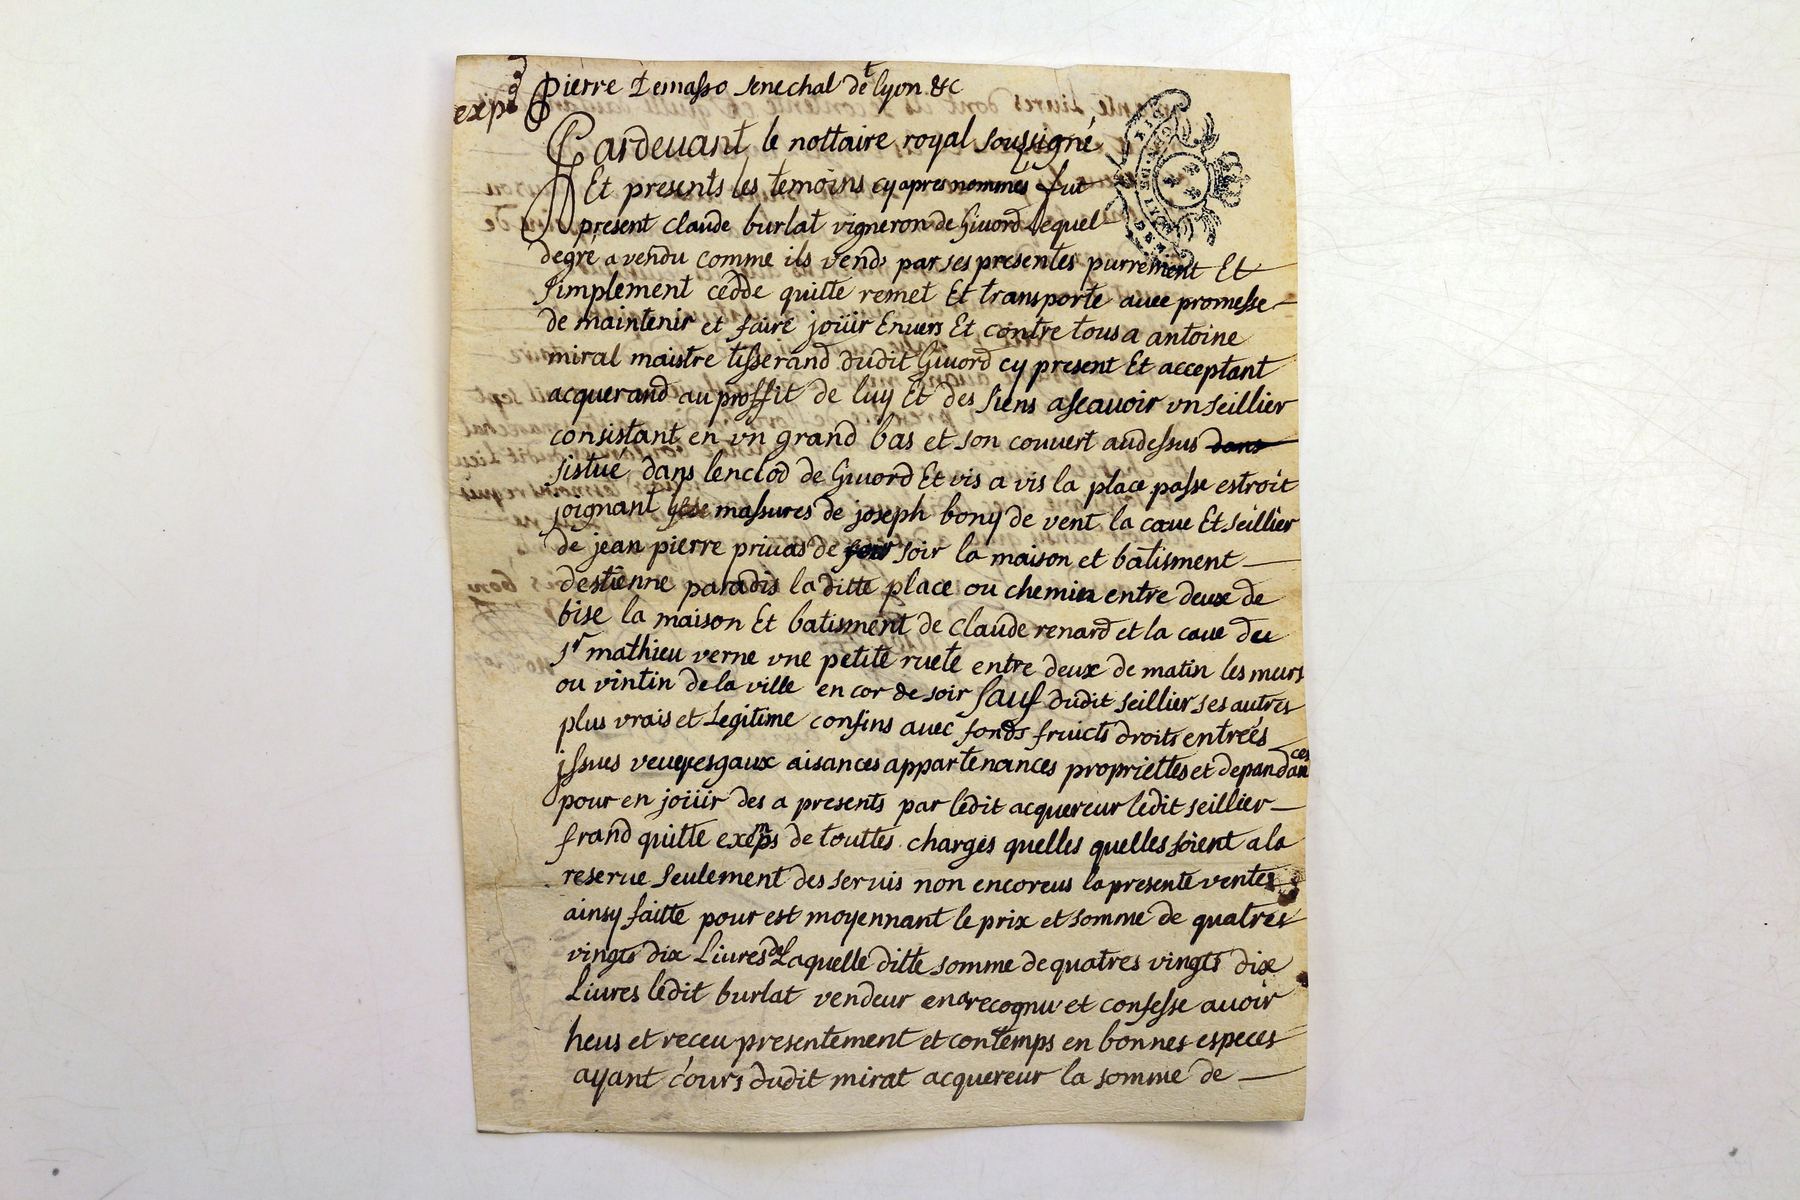 exp^d
Pierre Demasso senechal de lyon &c
Pardeuant le nottaire royal soussigné
Et presents les temoins cy apres nommés fut
present claude burlat vigneron de Giuord Lequel
degré a vendu comme ils vend par ses presentes purrement Et
simplement cedde quitte remet Et transporte auec promesse
de maintenir et faire joüir Enuers Et contre tous a antoine
miral maistre tisserand dudit Giuord cy present Et acceptant
acquerand au proffit de luy Et des siens ascauoir vn seillier
consistant en vn grand bas et son couuert audessus dans
sistuè dans lenclod de Giuord Et vis a vis la place passe estroit
joignant masures de joseph bony de vent la caue Et seillier
de jean pierre priuas de soir la maison et batisment
destienne paradis la ditte place ou chemin entre deux de
bise la maison Et batisment de claude renard et la caue du
s^r mathieu verne vne petite ruete entre deux de matin les murs
ou vintin de la ville en cor de soir sauf dudit seillier ses autres
plus vrais et Legitime confins auec fonds fruicts droits entrées
jssues aisances appartenances propriettes et depandances
pour en joüir des a presents par ledit acquereur ledit seillier
frand quitte exemps de touttes charges quelles quelles soient a la
reserue seulement des seruis non encoreus la presente ventes
ainsy faitte pour est moyennant le prix et somme de quatres
vingts dix Liures de Laquelle ditte somme de quatres vingts dix
Liures ledit burlat vendeur en a recognu et confesse auoir
heus et receu presentement et contemps en bonnes especes
ayant cours dudit mirat acquereur la somme de